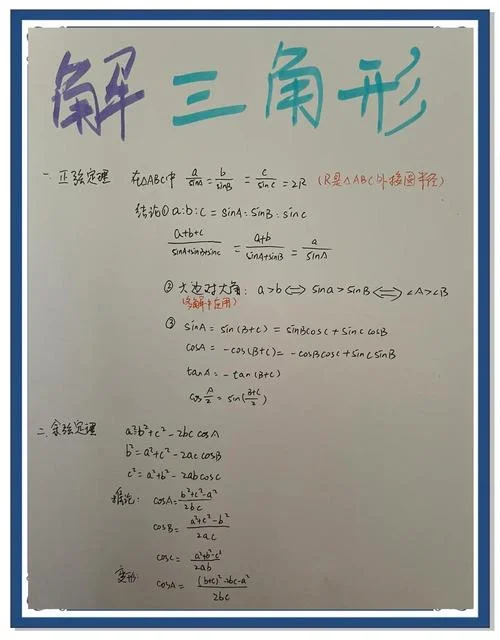 解三角形
一、正弦定理 在△ABC中 a/sinA = b/sinB = c/sinC = 2R (R是△ABC外接圆半径)
结论① a:b:c = sinA:sinB:sinC
a+b+c/sinA+sinB+sinc = a+b/sinA+sinB = a/sinA
② 大边对大角: a>b ⟺ sina>sinB ⟺ ∠A>∠B
(多解中应用)
③ sinA = sin(B+C) = sinBcosC + sinC cosB
cosA = -cos(B+C) = -cosBcosC + sinC sinB
tanA = -tan(B+C)
cos A/2 = sin(B+C/2)
二、余弦定理 a²=b²+c²-2bc cosA
b²=a²+c²-2ac cosB
c²=a²+b²-2ab cosc
推论: cosA = b²+c²-a²/2bc
cosB = a²+c²-b²/2ac
cosC = a²+b²-c²/2ab
变形: cosA = (b+c)²-2bc-a²/2bc